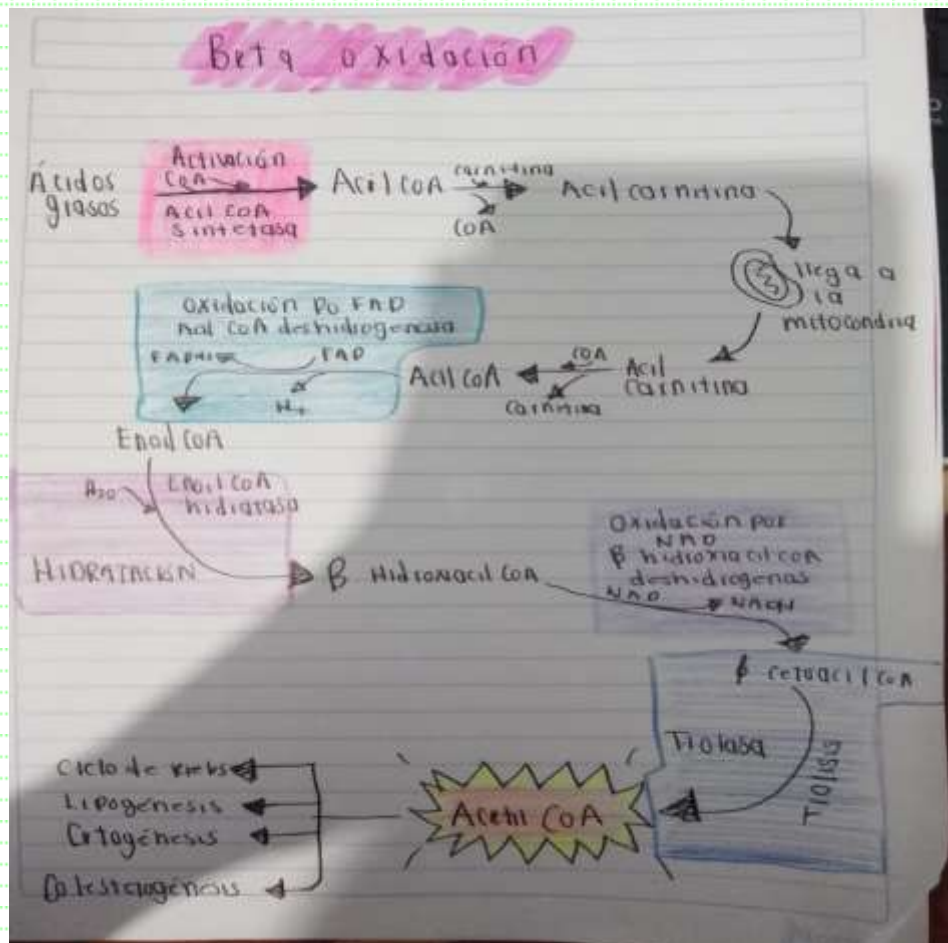 Beta oxidación
Ácidos
grasos
Activación
CoA
Acil CoA
sintetasa
Acil CoA
carnitina
CoA
Acil carnitina
llega a
la
mitocondria
Acil
Carnitina
CoA
Carnitina
Acil CoA
Oxidación po FAD
Acil CoA deshidrogenasa
FAD
Enoil CoA
H2O
Enoil CoA
hidratasa
HIDRATACIÓN
β Hidroxiacil CoA
Oxidación por
NAD
β hidroxiacil CoA
deshidrogenas
NAD
NADH
β cetoacil CoA
Tiolasa
Tiolisis
Acetil CoA
Ciclo de Krebs
Lipogénesis
Cetogénesis
Colesterogénesis